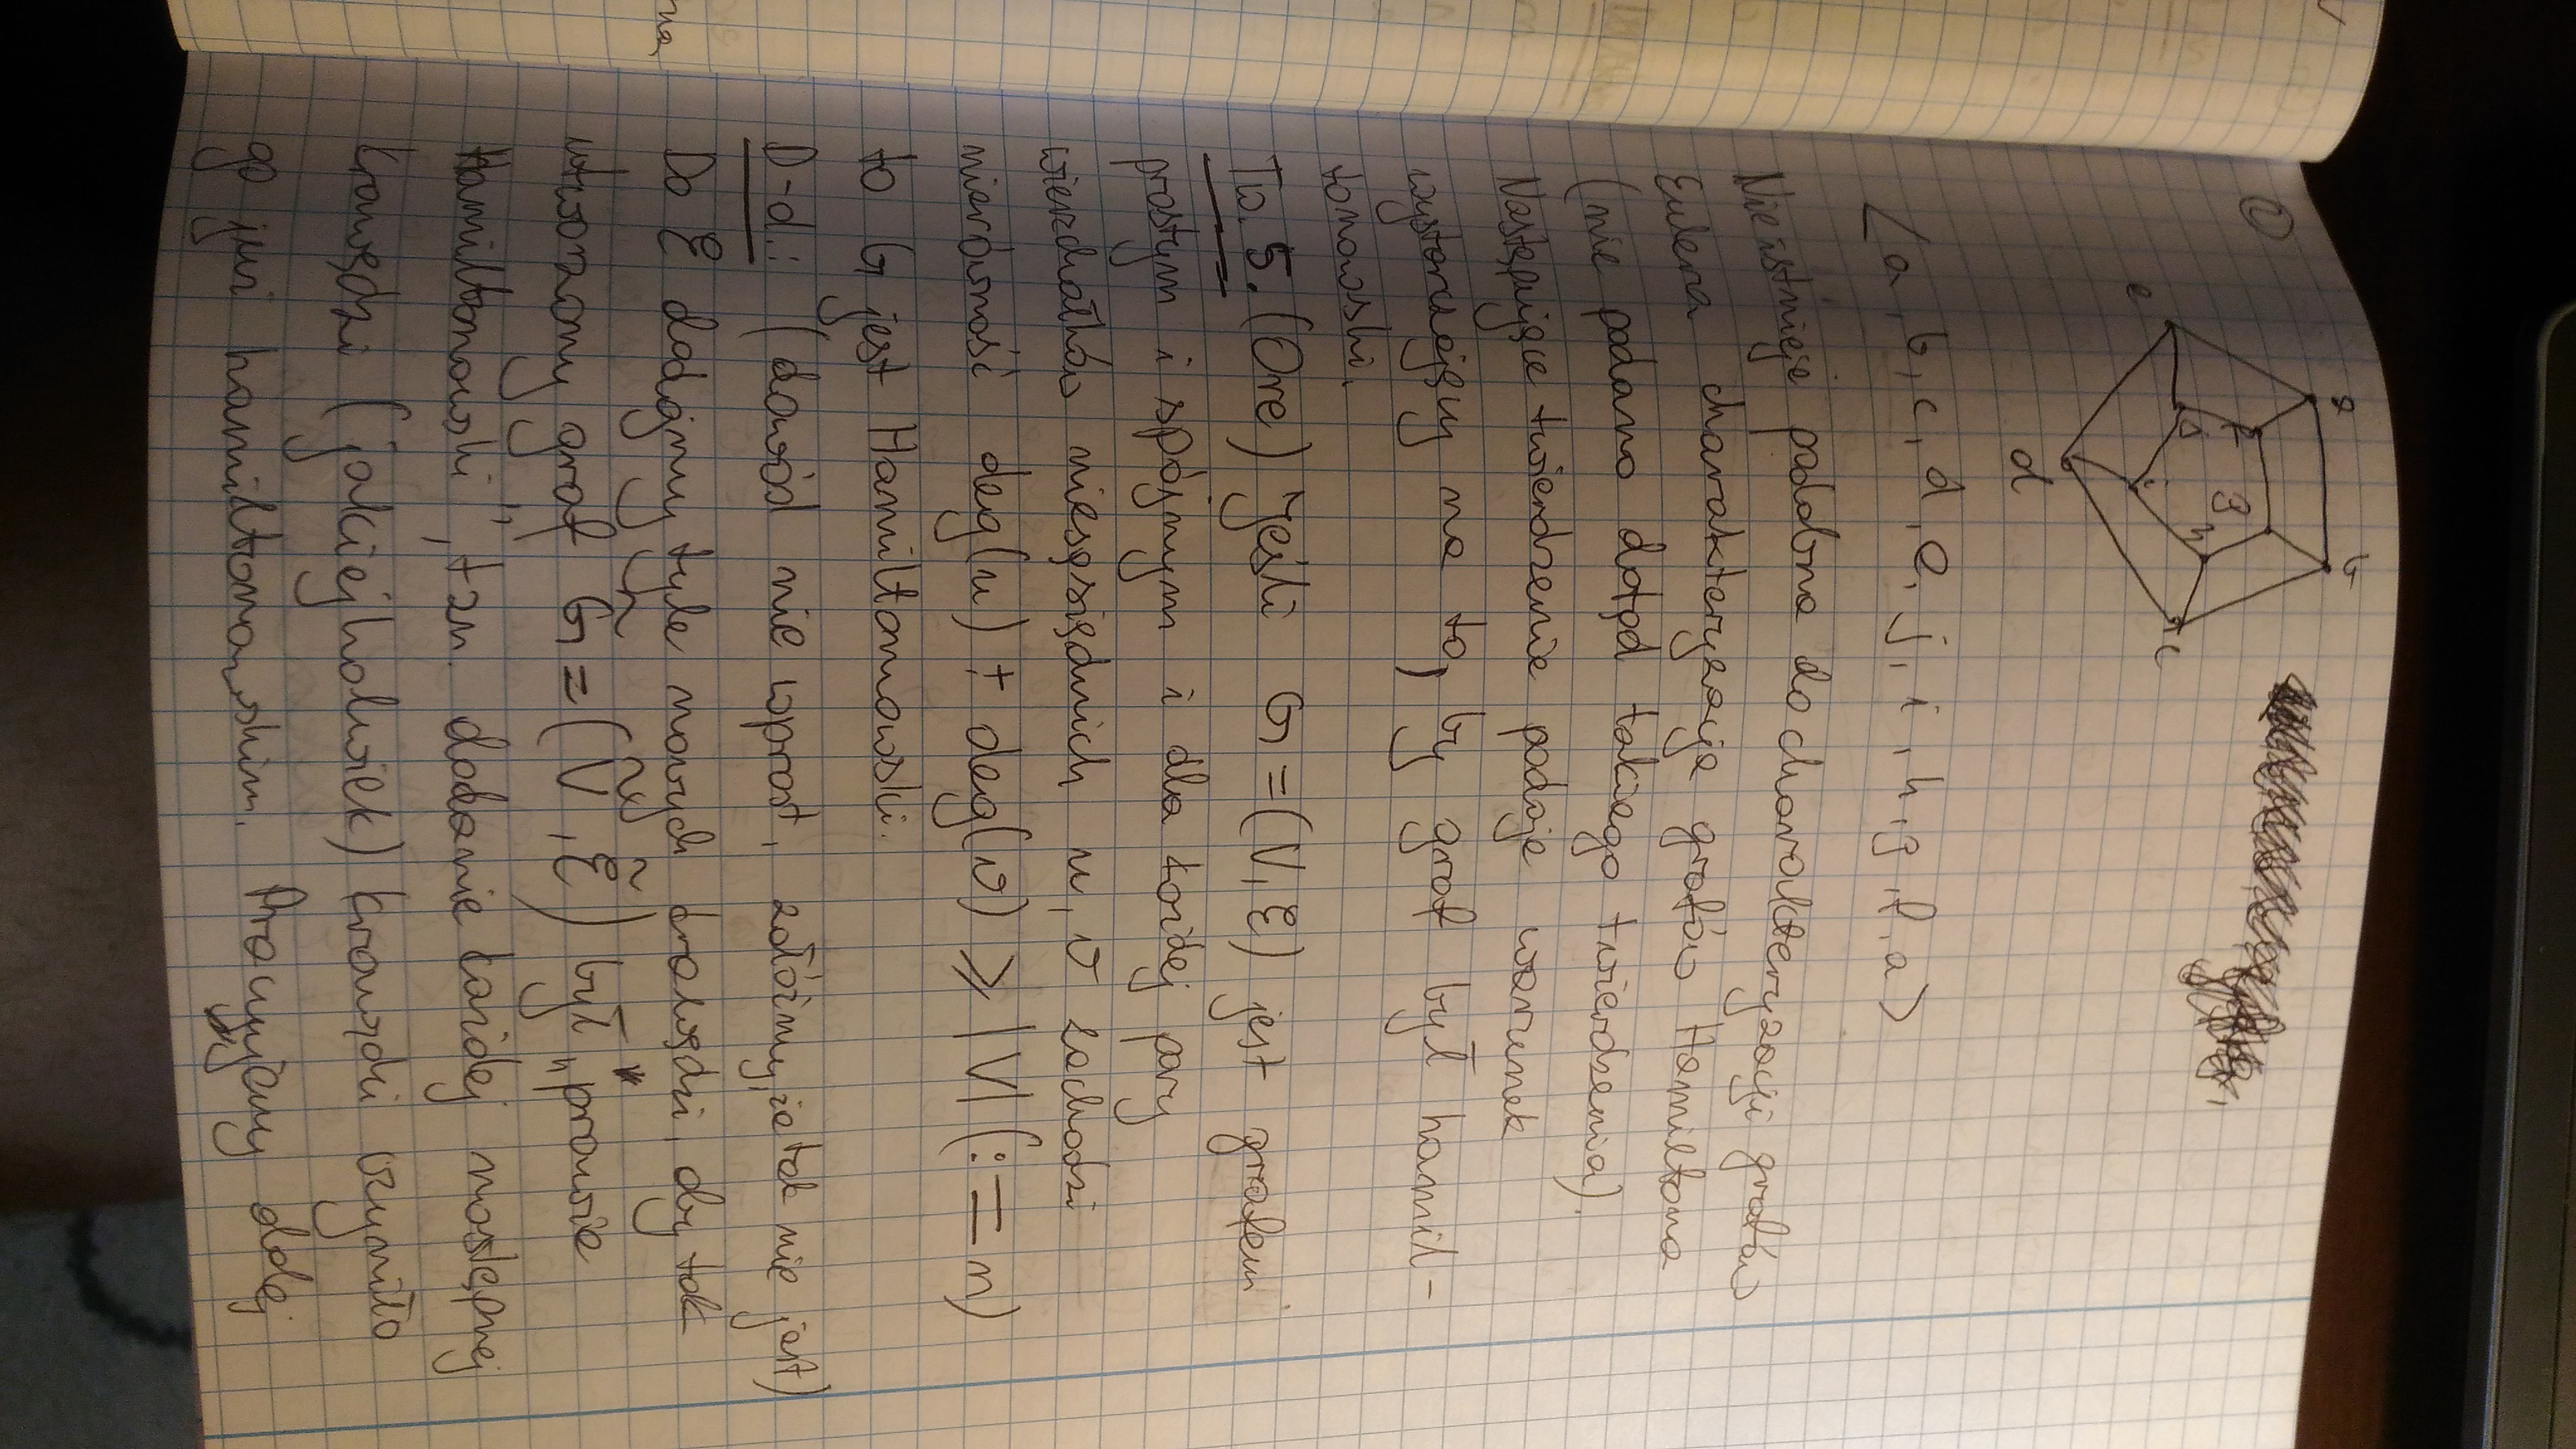 ②
a b
f g
j h
e i c
d
⟨a, b, c, d, e, j, i, h, g, f, a⟩
Nie istnieje podobna do charakteryzacji grafów
Eulera charakteryzacja grafów Hamiltona
(nie podano dotąd takiego twierdzenia).
Następujące twierdzenie podaje warunek
wystarczający na to, by graf był hamil-
tonowski.
Tw. 5. (Ore) Jeśli G = (V, E) jest grafem
prostym i spójnym i dla każdej pary
wierzchołków niesąsiednich u, v zachodzi
nierówność deg(u) + deg(v) ⩾ |V| (:= n)
to G jest Hamiltonowski.
D-d.: (dowód nie wprost, załóżmy, że tak nie jest)
Do E dodajmy tyle nowych krawędzi, aby tak
utworzony graf G̃ = (Ṽ, Ẽ) był „prawie
Hamiltonowski", tzn. dodanie każdej następnej
krawędzi (jakiejkolwiek) krawędzi czyniło
go już hamiltonowskim. Pracujemy dalej
na